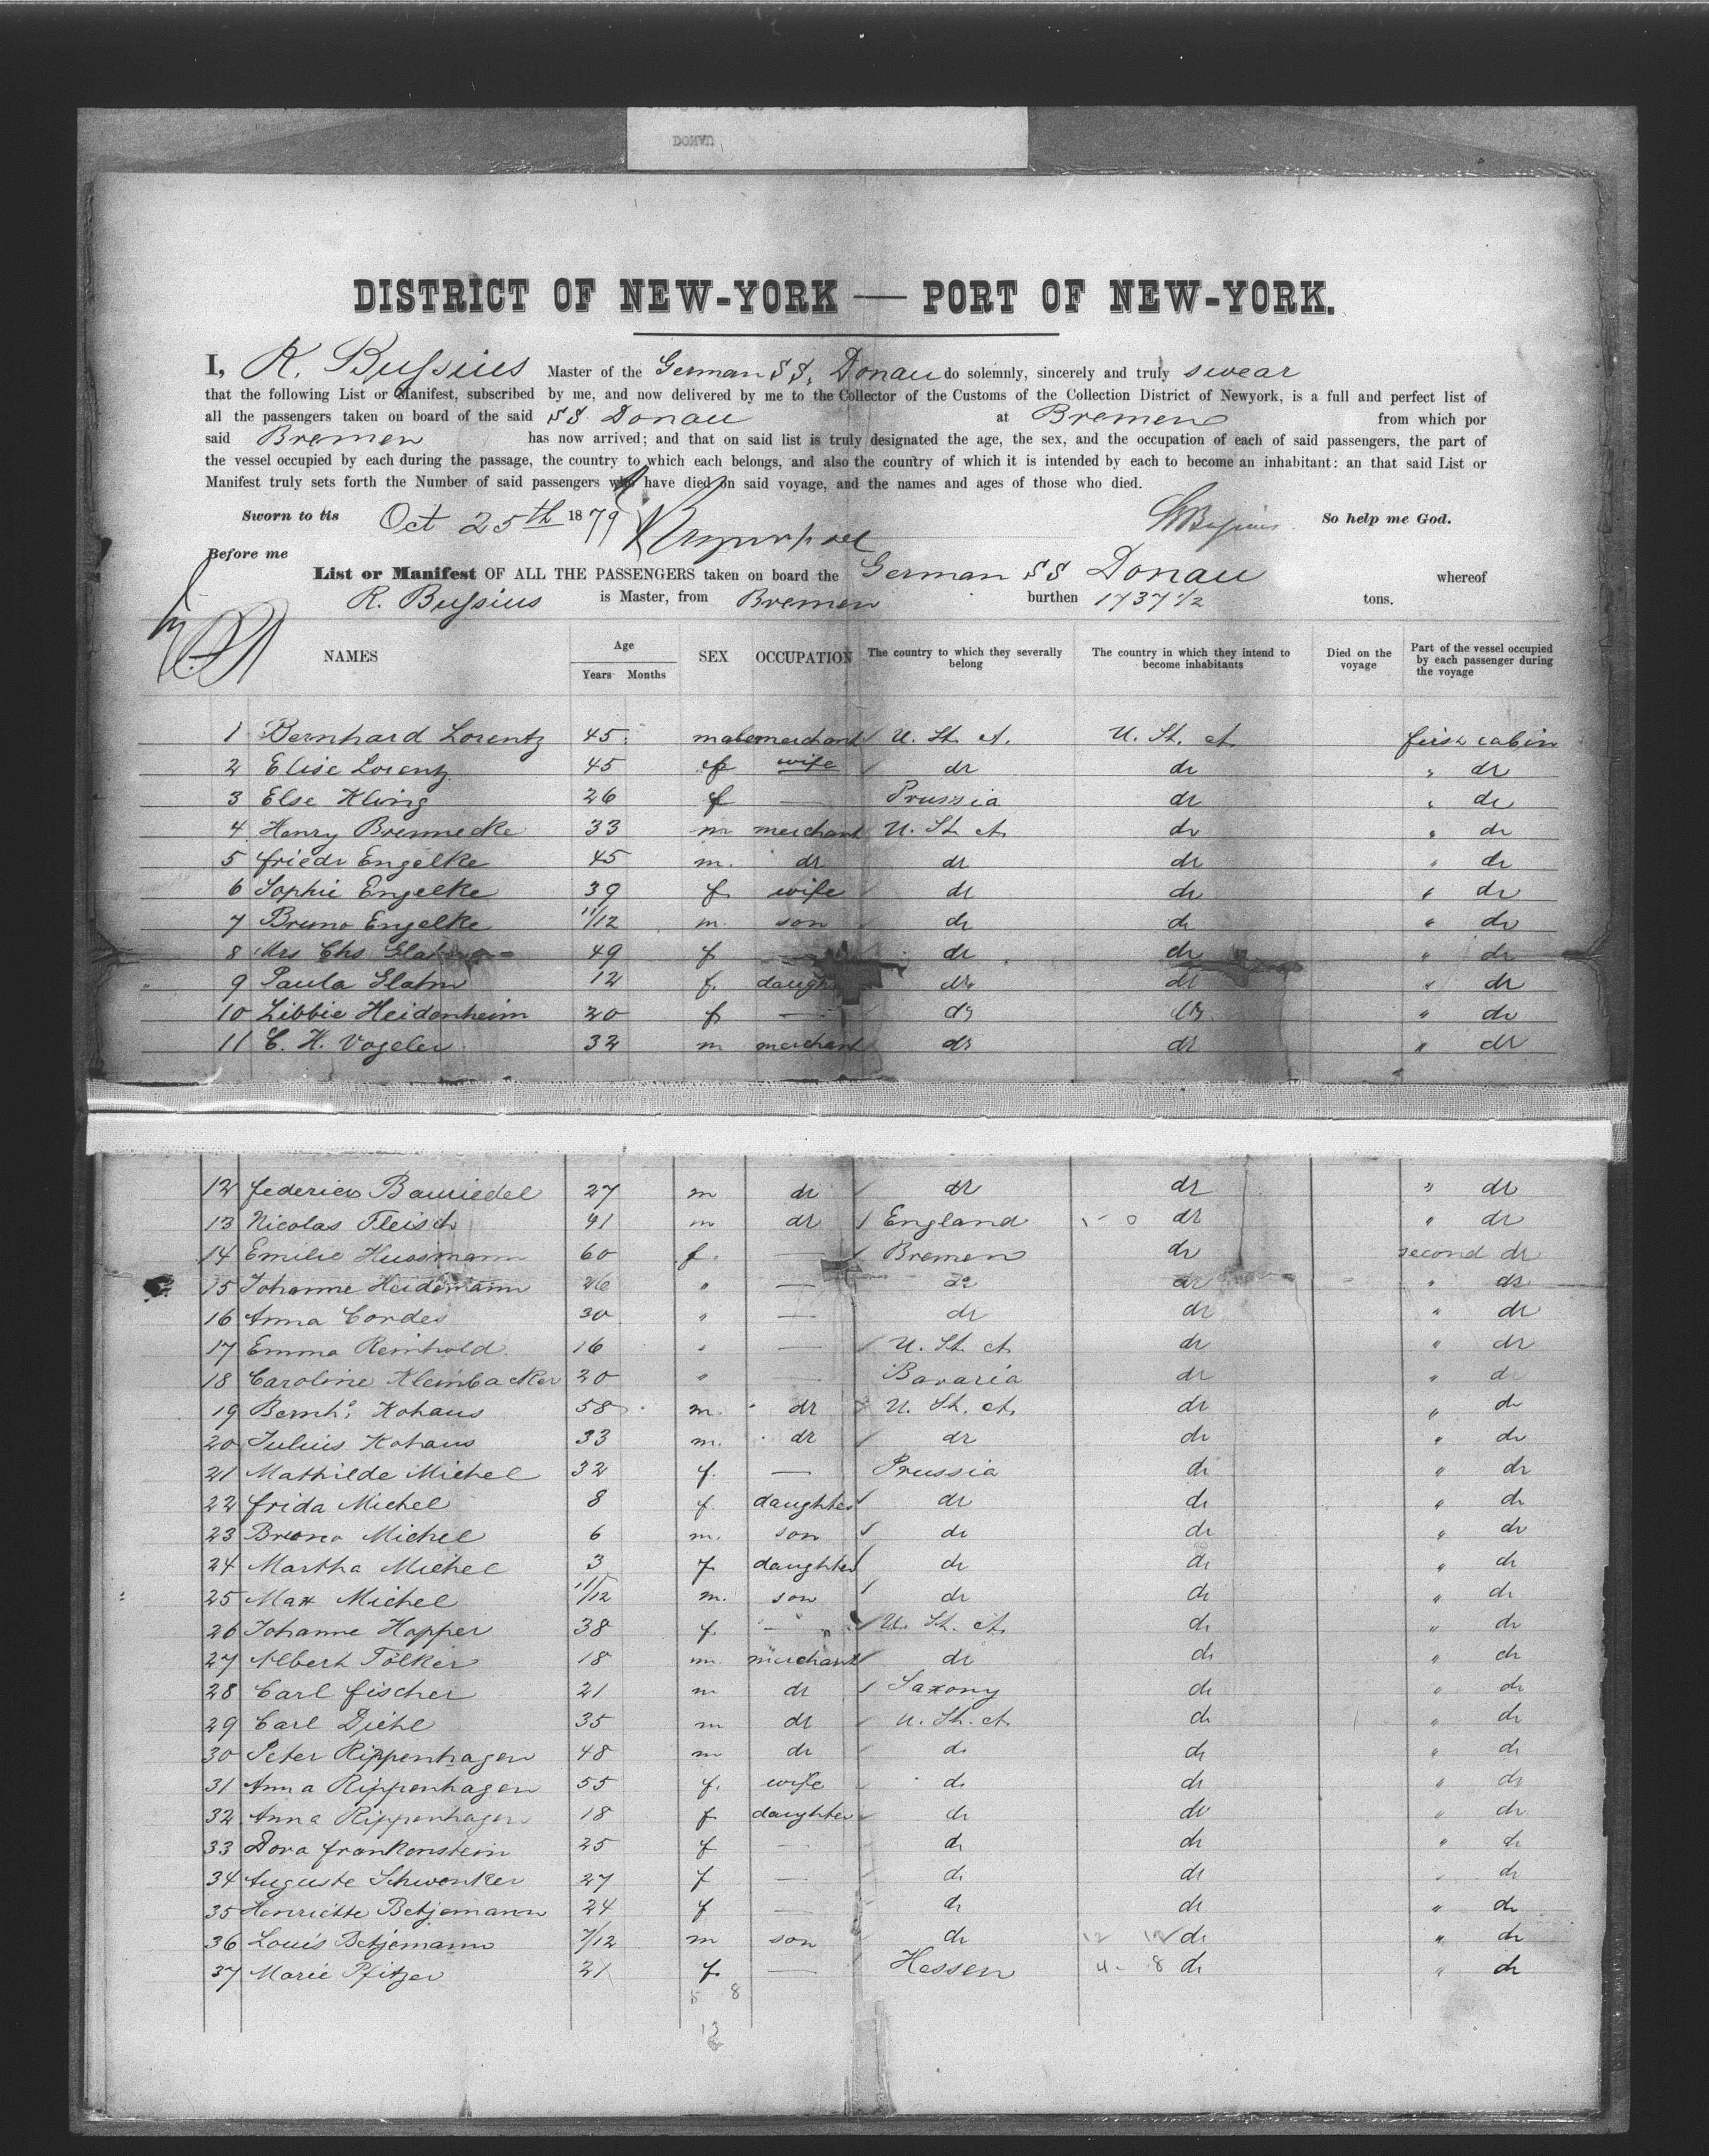 DISTRICT OF NEW-YORK — PORT OF NEW-YORK.
I, R. Bussius Master of the German SS. Donau do solemnly, sincerely and truly swear
that the following List or Manifest, subscribed by me, and now delivered by me to the Collector of the Customs of the Collection District of Newyork, is a full and perfect list of
all the passengers taken on board of the said SS Donau at Bremen from which por
said Bremen has now arrived; and that on said list is truly designated the age, the sex, and the occupation of each of said passengers, the part of
the vessel occupied by each during the passage, the country to which each belongs, and also the country of which it is intended by each to become an inhabitant: an that said List or
Manifest truly sets forth the Number of said passengers who have died on said voyage, and the names and ages of those who died.
Sworn to tis Oct 25th 1879 RBussius So help me God.
Before me
List or Manifest OF ALL THE PASSENGERS taken on board the German SS Donau whereof
R. Bussius is Master, from Bremen burthen 1737 1/2 tons.
NAMES Age Years Months SEX OCCUPATION The country to which they severally belong The country in which they intend to become inhabitants Died on the voyage Part of the vessel occupied by each passenger during the voyage
1 Bernhard Lorentz 45 male merchant U. St. A. U. St. A. first cabin
2 Elise Lorentz 45 f wife do do " do
3 Else Kling 26 f — Prussia do " do
4 Henry Brennecke 33 m merchant U. St. A. do " do
5 Friedr Engelke 45 m. do do do " do
6 Sophie Engelke 39 f wife do do " do
7 Bruno Engelke 11/12 m. son do do " do
8 Mrs Chs 49 f — do do " do
9 Paula Glahn 12 f. daugh do do " do
10 Libbie Heidenheim 20 f — do do " do
11 C. H. Vogeler 32 m merchant do do " do
12 Federico Bauriedel 27 m do do do " do
13 Nicolas Fleisch 41 m do England do " do
14 Emilie Hussmann 60 f. — Bremen do second do
15 Johanne Heidemann 26 " — do do " do
16 Anna Cordes 30 " — do do " do
17 Emma Reinhold 16 " — U. St. A. do " do
18 Caroline Kleinbacker 20 " — Bavaria do " do
19 Bernh. Kohaus 58 m. do U. St. A. do " do
20 Julius Kohaus 33 m. do do do " do
21 Mathilde Michel 32 f. — Prussia do " do
22 Frida Michel 8 f daughter do do " do
23 Bruno Michel 6 m. son do do " do
24 Martha Michel 3 f daughter do do " do
25 Max Michel 11/12 m. son do do " do
26 Johanne Hopper 38 f. — " U. St. A. do " do
27 Albert Tölker 18 m. merchant do do " do
28 Carl Fischer 21 m do Saxony do " do
29 Carl Diehl 35 m do U. St. A. do " do
30 Peter Rippenhagen 48 m do do do " do
31 Anna Rippenhagen 55 f. wife do do " do
32 Anna Rippenhagen 18 f daughter do do " do
33 Dora Frankenstein 25 f — do do " do
34 Auguste Schwenker 27 f — do do " do
35 Henriette Betjemann 24 f — do do " do
36 Louis Betjemann 7/12 m son do do " do
37 Marie Pfitzer 21 f. — Hessen do " do